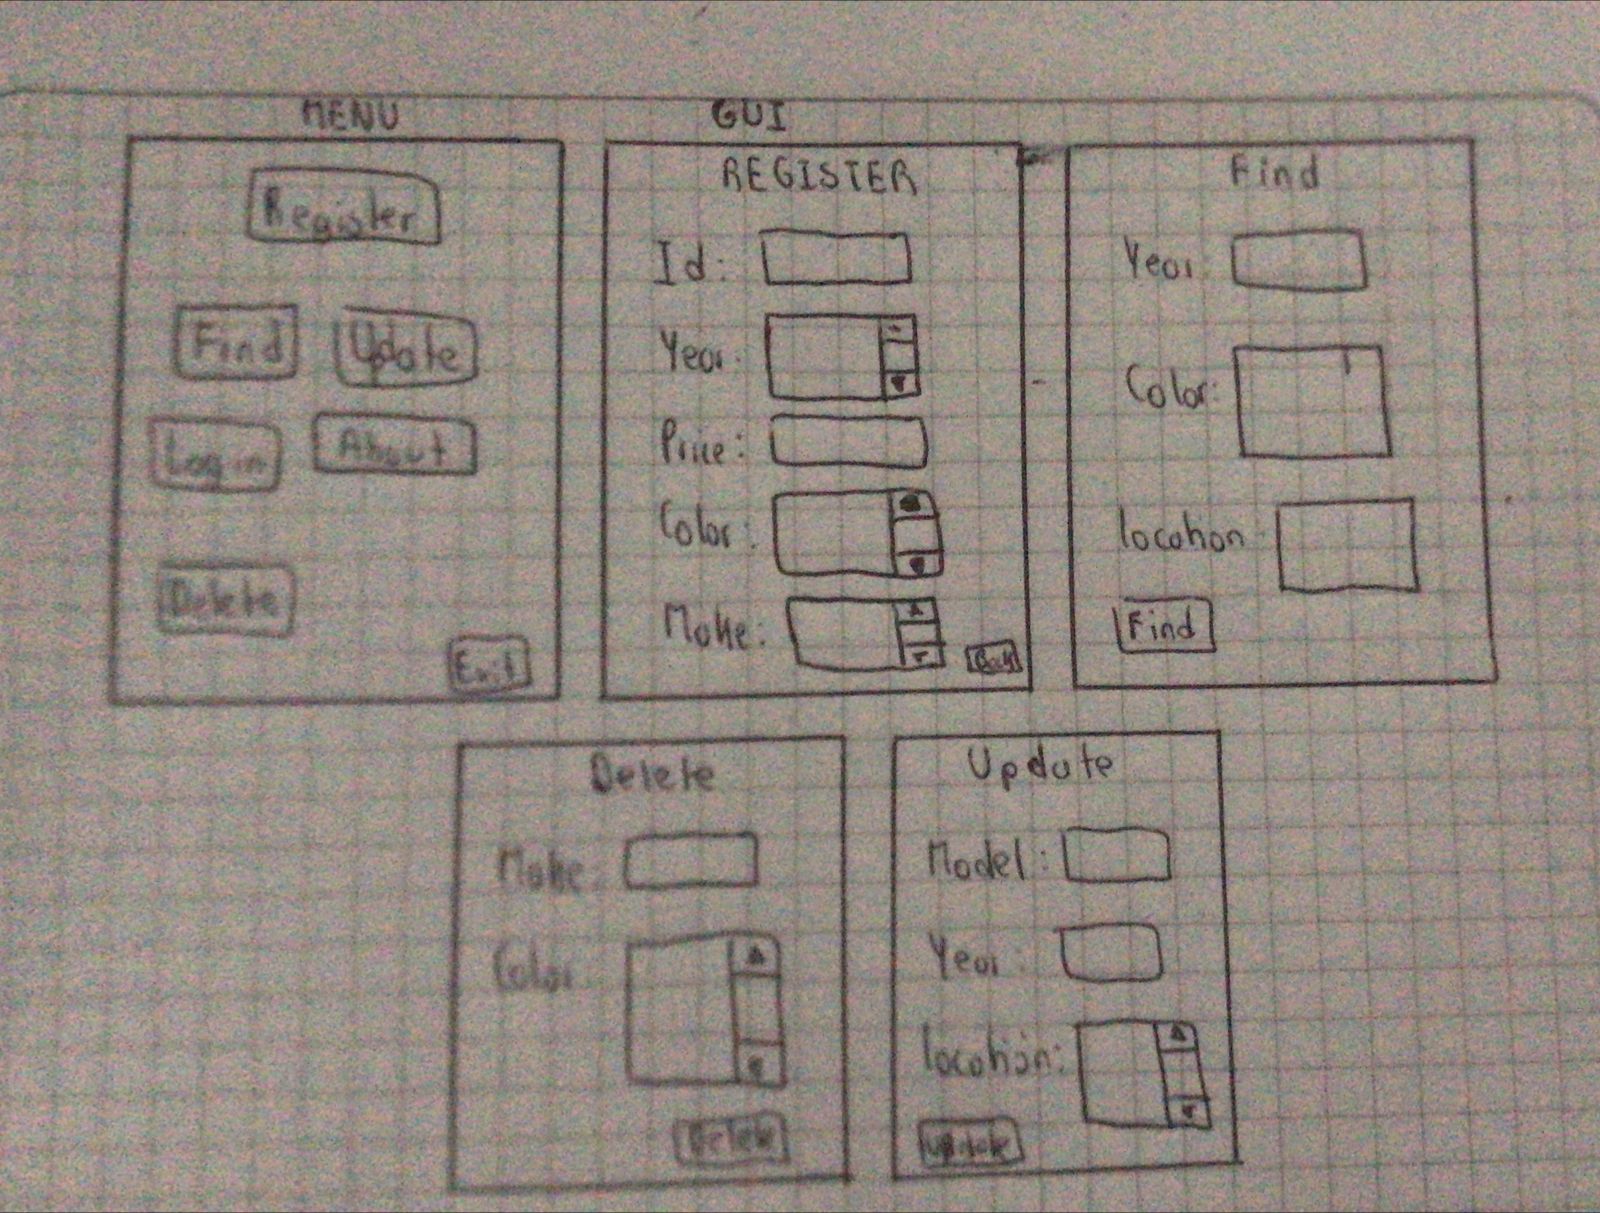 MENU
GUI
Register
Find
Update
Log in
About
Delete
Exit
REGISTER
Id:
Year:
Price:
Color:
Make:
Back
Find
Year
Color:
location
Find
Delete
Make:
Color
Delete
Update
Model:
Year:
location:
Update